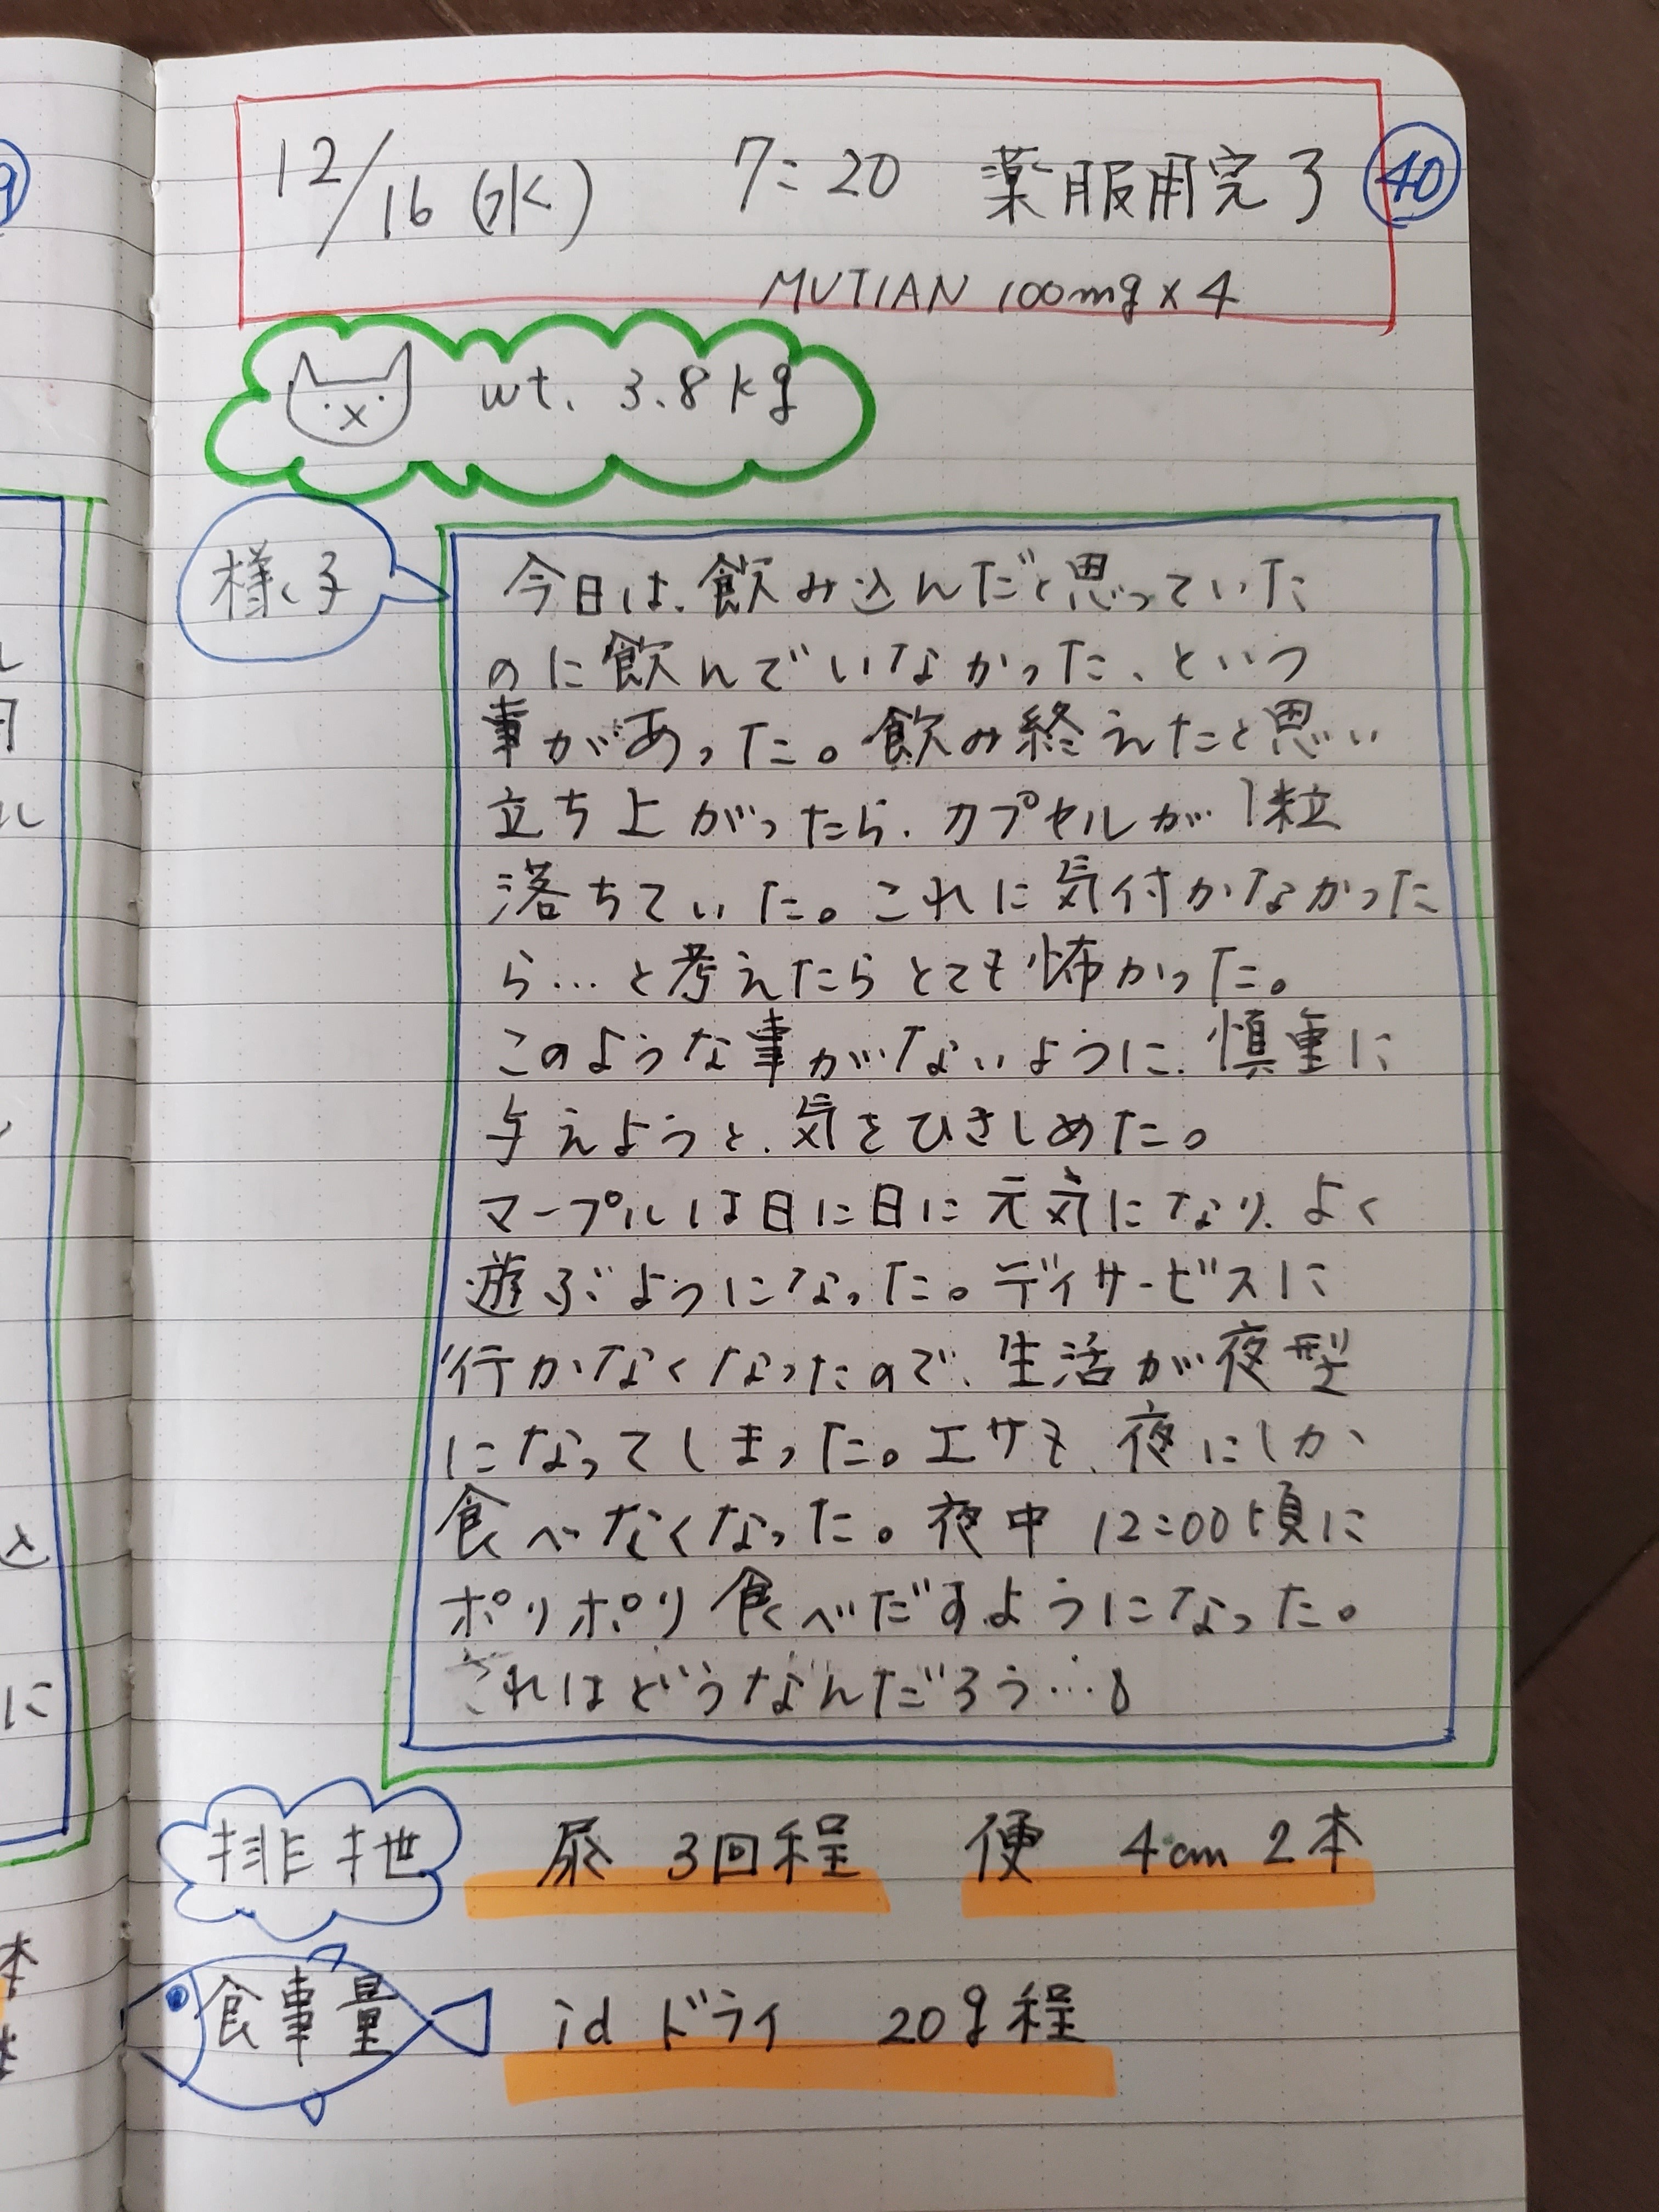 12/16 (水) 7:20 薬服用完了 40
MUTIAN 100mg×4
wt. 3.8kg
様子
今日は、飲み込んだと思っていた
のに飲んでいなかった、という
事があった。飲み終えたと思い
立ち上がったら、カプセルが1粒
落ちていた。これに気付かなかった
ら…と考えたらとても怖かった。
このような事がないように、慎重に
与えようと、気をひきしめた。
マープルは日に日に元気になり、よく
遊ぶようになった。デイサービスに
行かなくなったので、生活が夜型
になってしまった。エサも、夜にしか
食べなくなった。夜中12:00頃に
ポリポリ食べだすようになった。
これはどうなんだろう…。
排泄 尿 3回程 便 4cm 2本
食事量 id ドライ 20g程